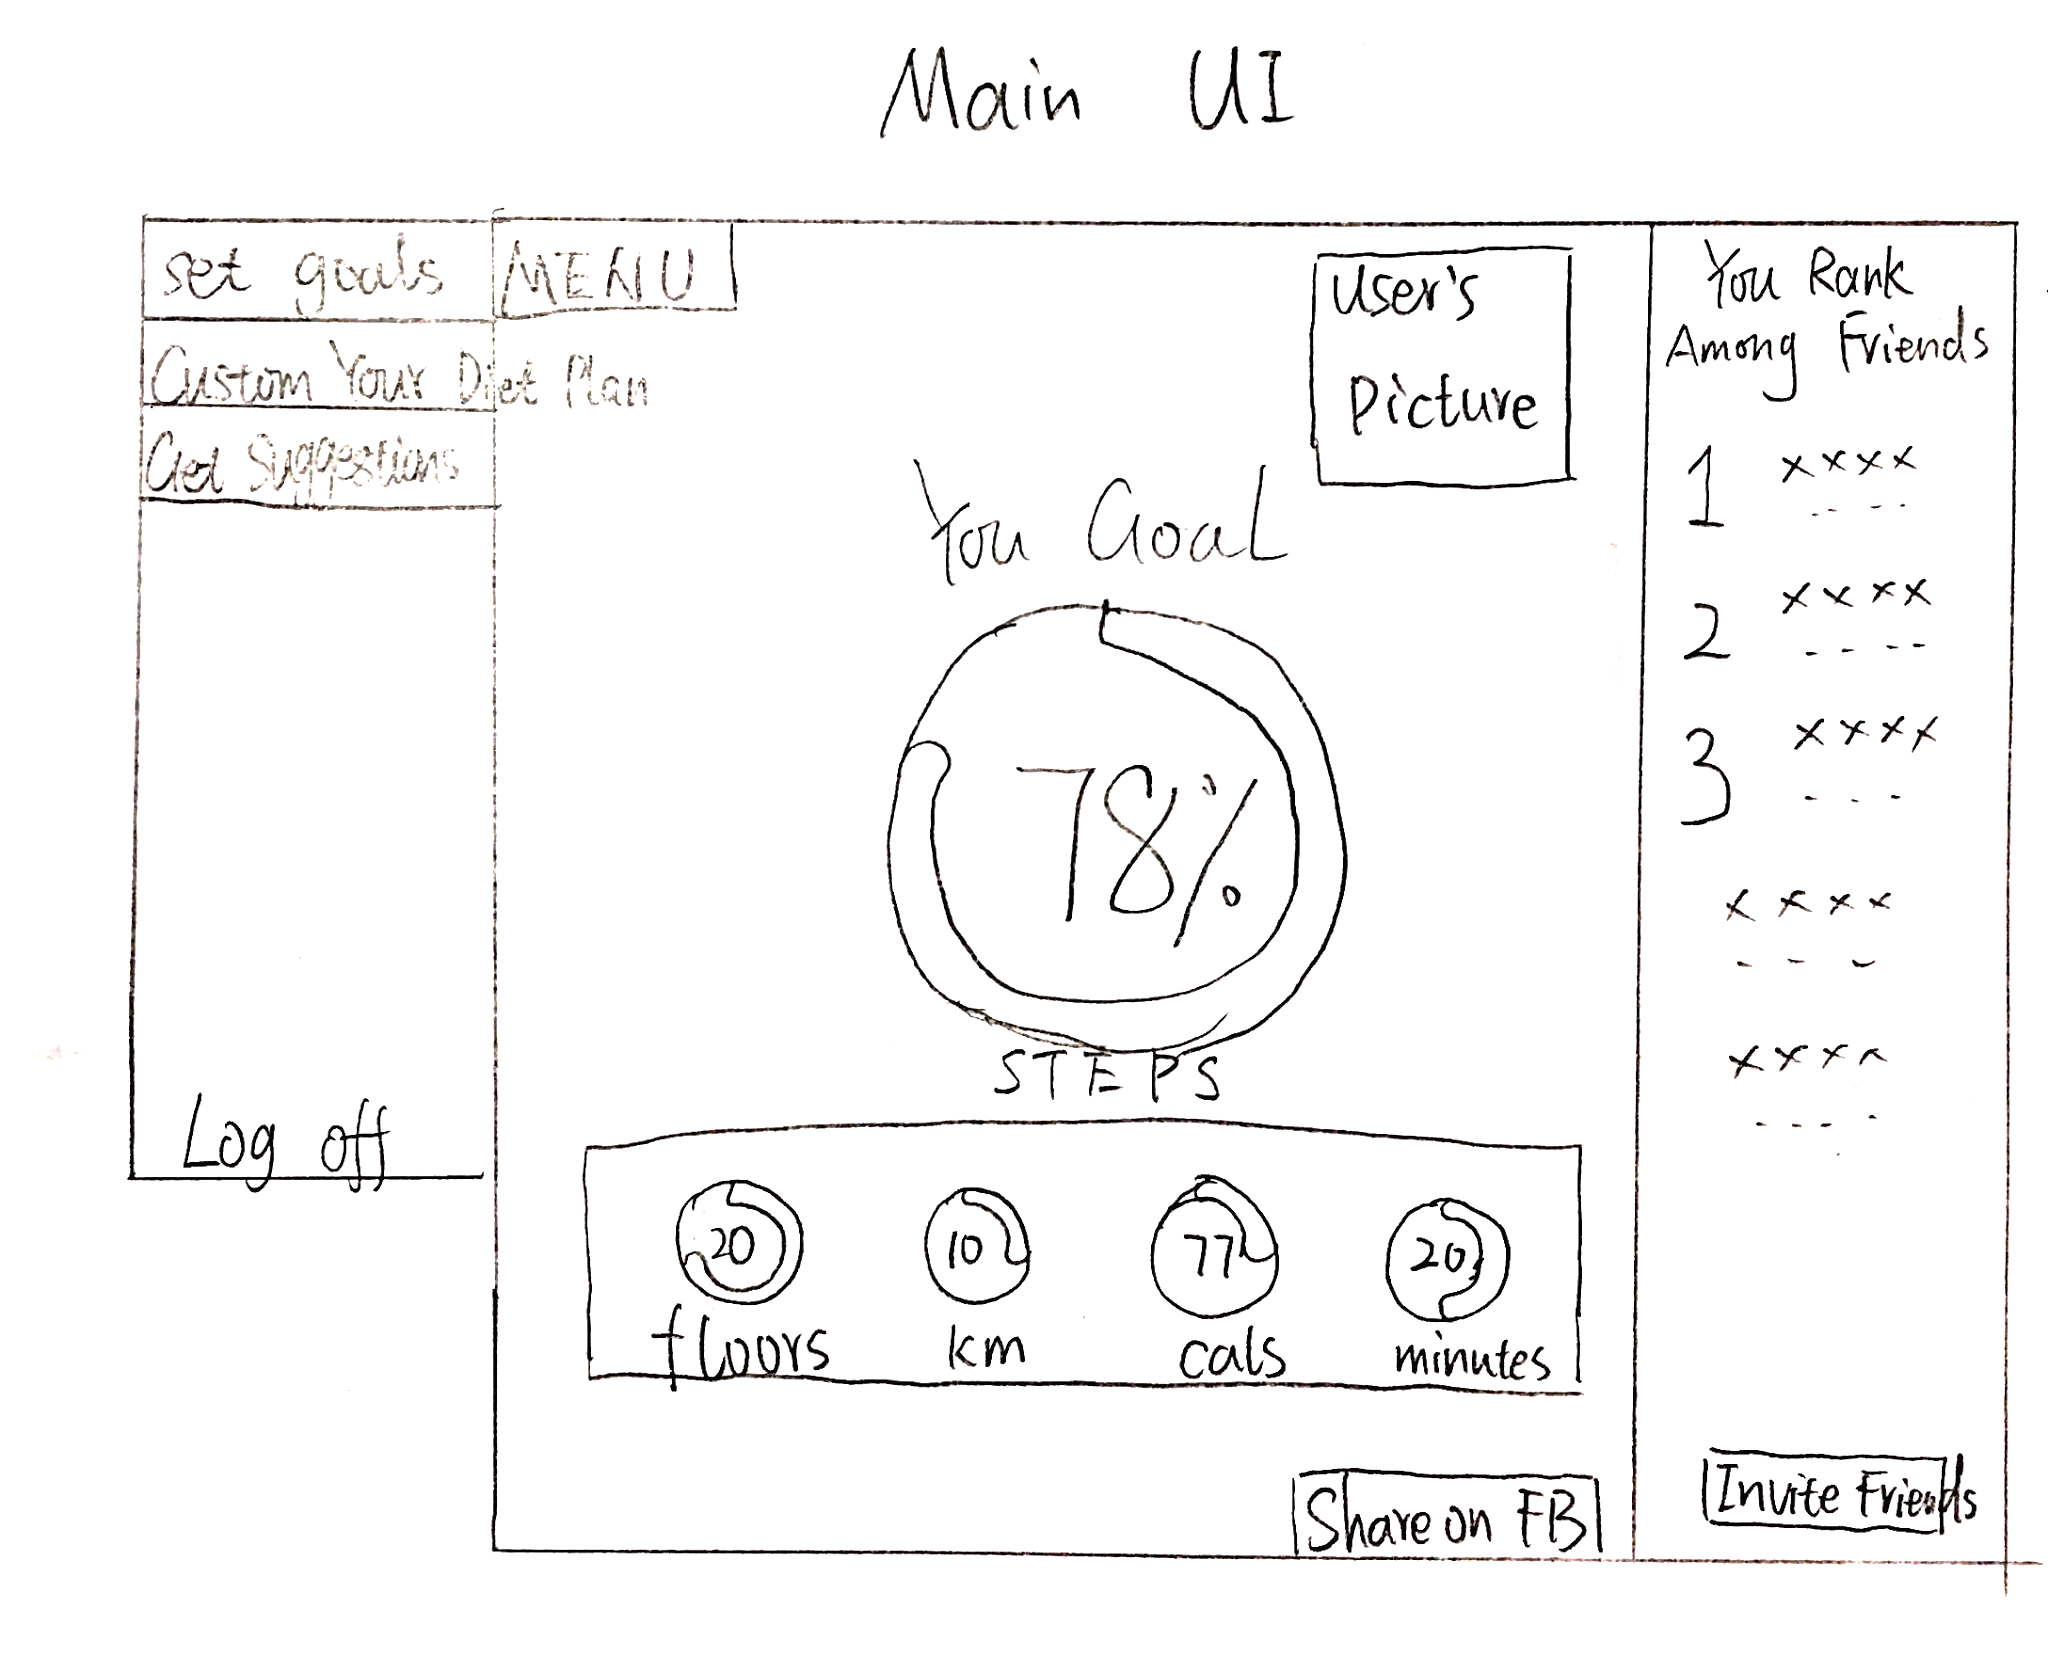 Main UI
set goals
MENU
Custom Your Diet Plan
Get Suggestions
Log off
User's
Picture
You Goal
78%
STEPS
20
floors
10
km
77
cals
20
minutes
Share on FB
You Rank
Among Friends
1 xxxx
----
2 xxxx
----
3 xxxx
---
xxxx
---
xxxx
----
Invite Friends